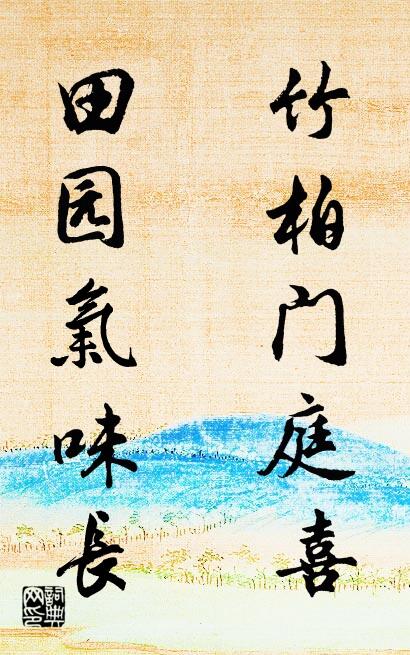 竹柏门庭喜
田园氣味長
詞典网印